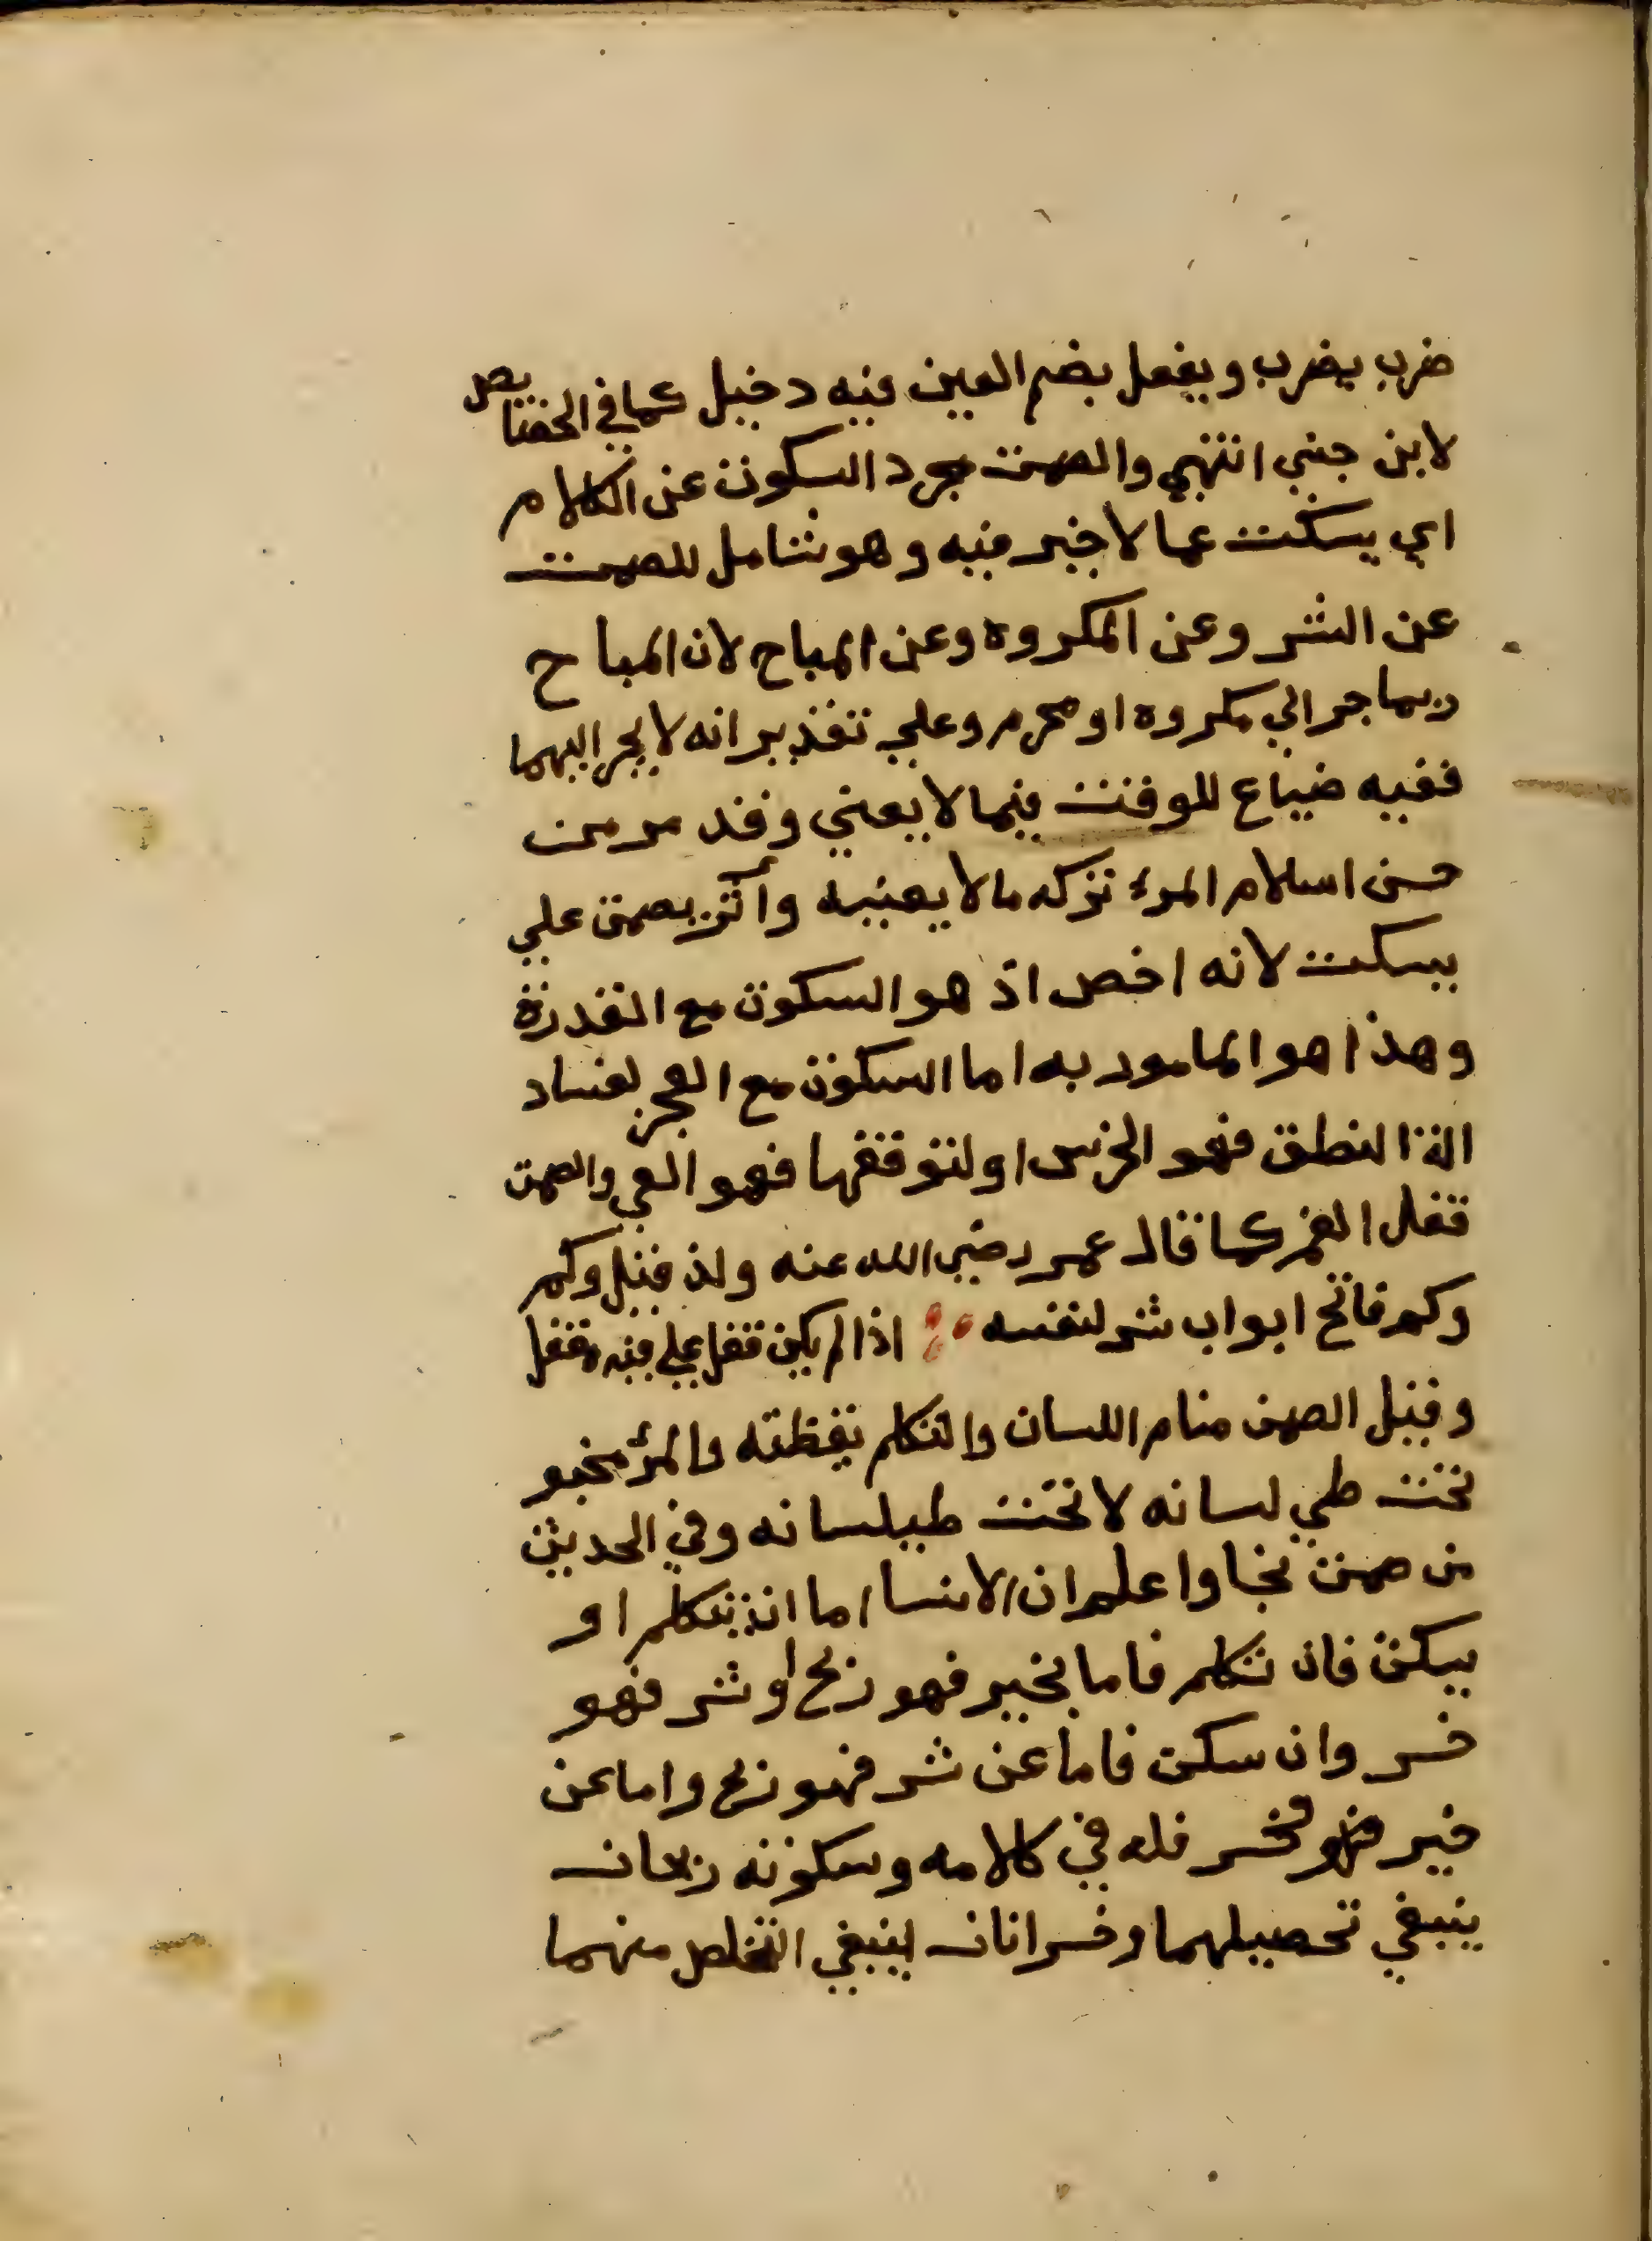 ضرب يضرب ويفعل بضم العين فيه دخيل كما في الخصايص
لابن جني انتهي والصمت مجرد السكوت عن الكلام
اي يسكت عما لا خير فيه وهو شامل للصمت
عن الشر وعن المكروه وعن المباح لان المباح
ربما جر الي مكروه او محرم وعلي تقدير انه لا يجر اليهما
ففيه ضياع للوقت فيما لا يعني وقد مر من
حسن اسلام المرء تركه ما لا يعنيه وآثر يصمت علي
يسكت لانه اخص اذ هو السكوت مع القدرة
وهذا هو المامور به اما السكوت مع العجز لفساد
الة النطق فهو الخرس او لتوقفها فهو العي والصمت
قفل الفم كما قال عمر رضي الله عنه ولذ قيل وكم
وكم فاتح ابواب شر لنفسه اذا لم يكن قفل علي فيه مقفل
وقيل الصمت منام اللسان والتكلم يقظته والمرؤ مخبو
تحت طي لسانه لا تحت طيلسانه وفي الحديث
من صمت نجا واعلم ان الانسا اما ان يتكلم او
يسكت فان تكلم فاما بخير فهو ربح او شر فهو
خسر وان سكت فاما عن شر فهو ربح واما عن
خير فهو خسر فله في كلامه وسكوته ربحان
ينبغي تحصيلهما وخسرانان ينبغي التخلص منهما